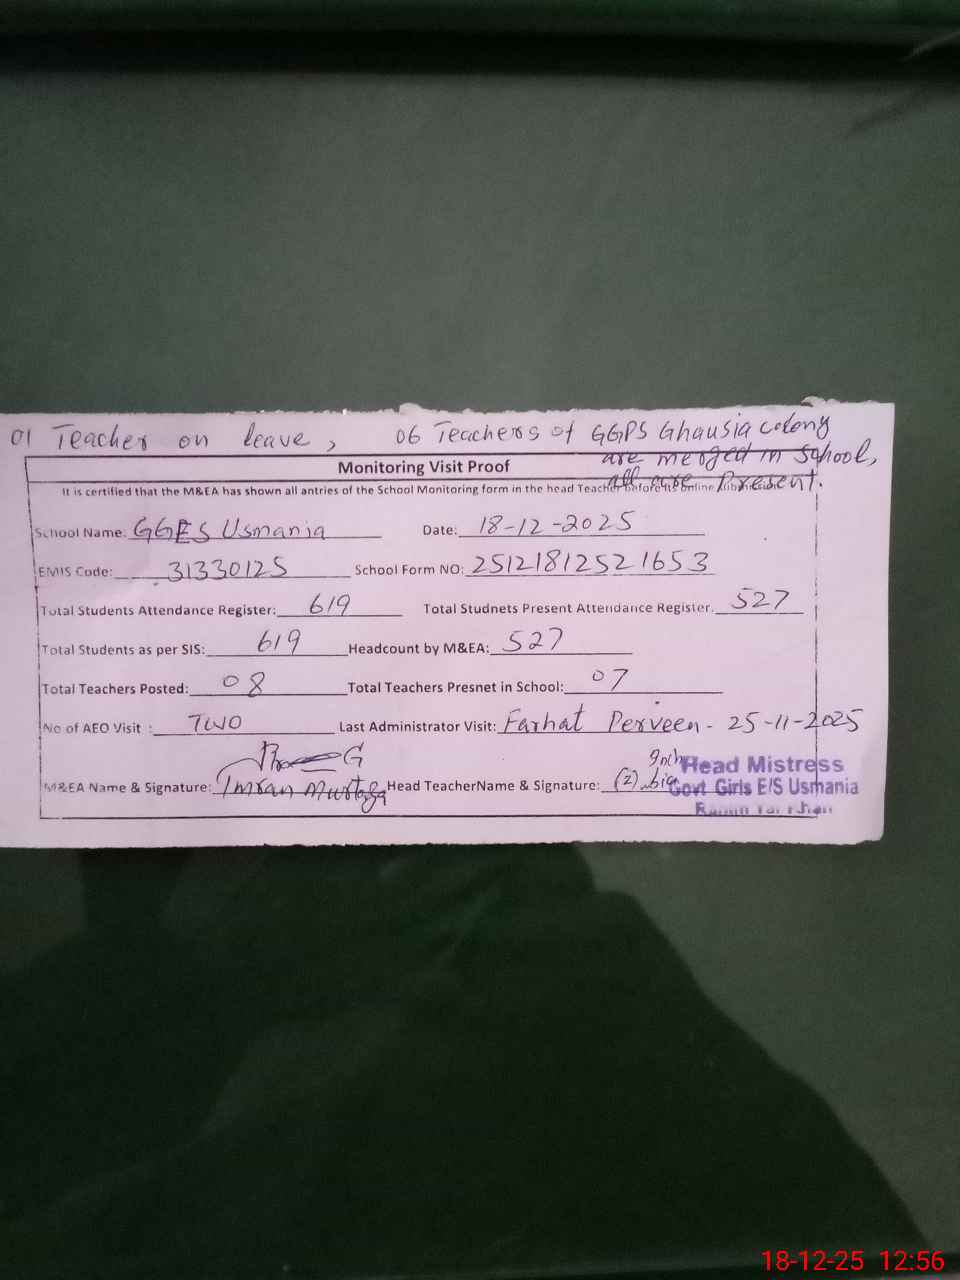 01 Teacher on leave, 06 Teachers of GGPS Ghausia colony
are merged in school,
all are Present.
Monitoring Visit Proof
It is certified that the M&EA has shown all antries of the School Monitoring form in the head Teacher before its online
School Name: GGES Usmania Date: 18-12-2025
EMIS Code: 31330125 School Form NO: 2512181252 1653
Total Students Attendance Register: 619 Total Studnets Present Attendance Register. 527
Total Students as per SIS: 619 Headcount by M&EA: 527
Total Teachers Posted: 08 Total Teachers Presnet in School: 07
No of AEO Visit : TWO Last Administrator Visit: Farhat Perveen - 25-11-2025
M&EA Name & Signature: Imran Murtaza Head TeacherName & Signature:
Head Mistress
Govt Girls E/S Usmania
Rahim Yar Khan
18-12-25 12:56